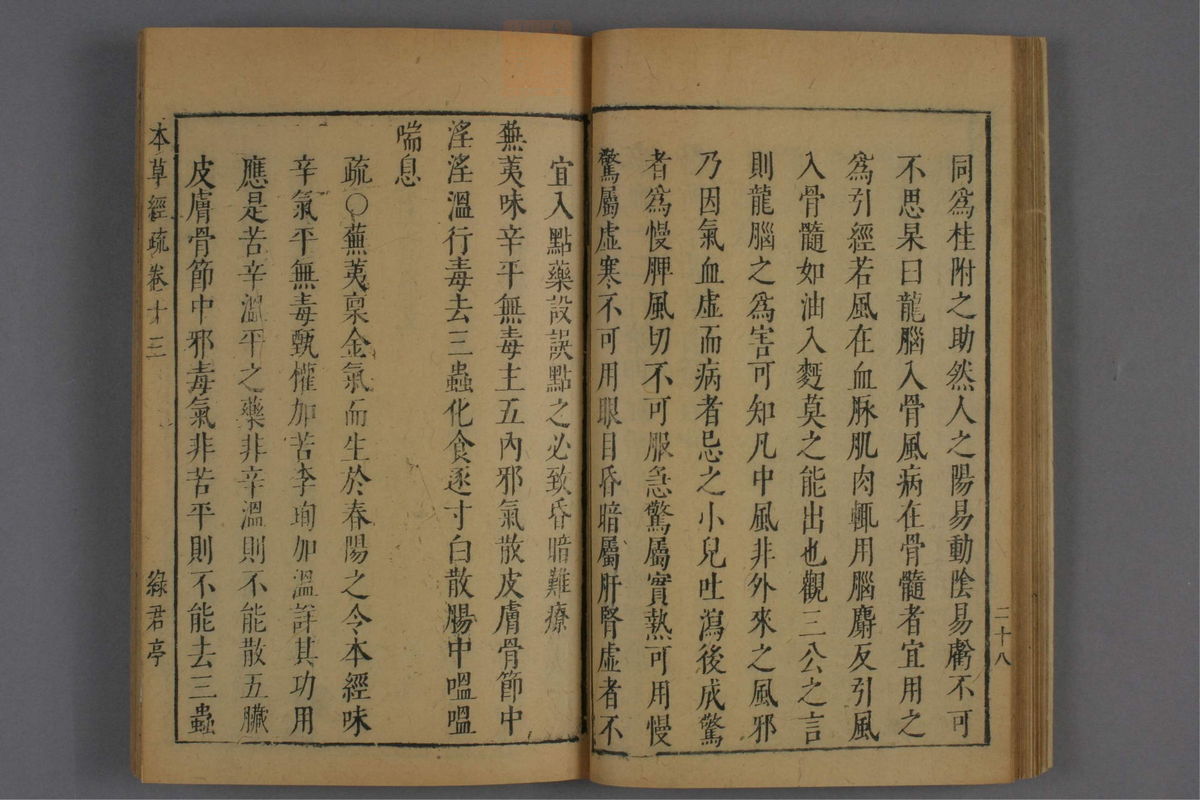 同爲桂附之助然人之陽易動陰易虧不可
不思杲曰龍腦入骨風病在骨髓者宜用之
爲引經若風在血脉肌肉輒用腦麝反引風
入骨髓如油入麫莫之能出也觀三公之言
則龍腦之爲害可知凡中風非外來之風邪
乃因氣血虛而病者忌之小兒吐瀉後成驚
者爲慢脾風切不可服急驚屬實熱可用慢
驚屬虛寒不可用眼目昏暗屬肝腎虛者不
二十八
宜入點藥設誤點之必致昏暗難療
蕪荑味辛平無毒主五內邪氣散皮膚骨節中
淫淫溫行毒去三蟲化食逐寸白散腸中嗢嗢
喘息
疏○蕪荑稟金氣而生於春陽之令本經味
辛氣平無毒甄權加苦李珣加溫詳其功用
應是苦辛溫平之藥非辛溫則不能散五臟
皮膚骨節中邪毒氣非苦平則不能去三蟲
本草經疏卷十三
綠君亭